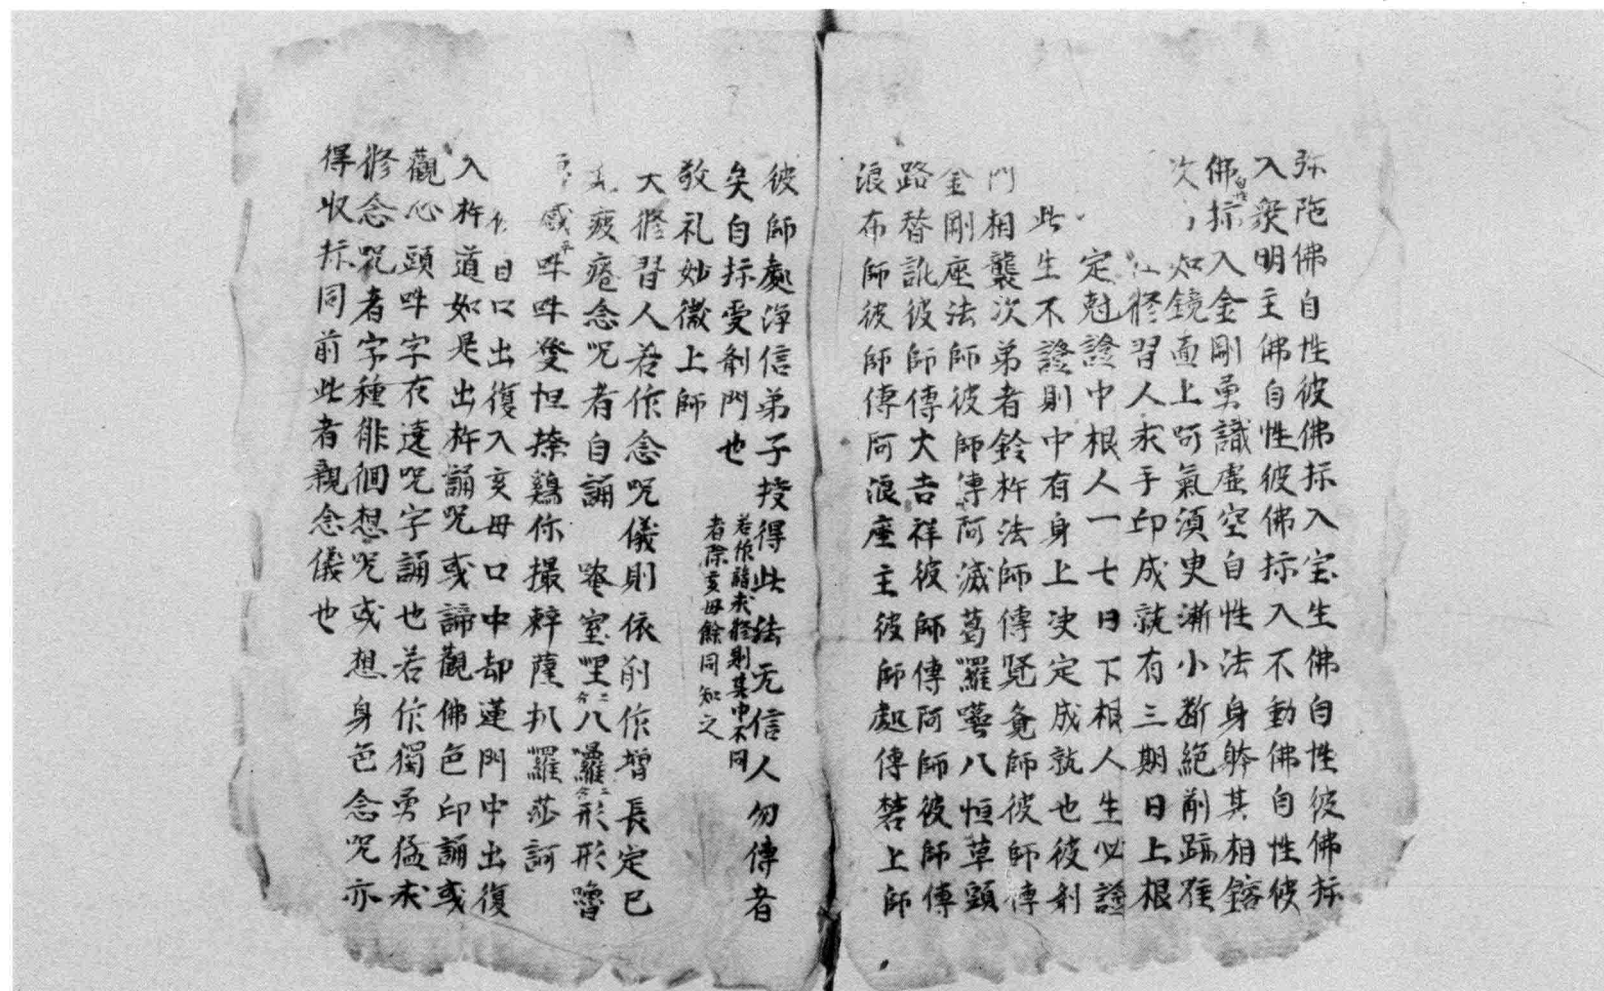 弥陁佛自性彼佛标入宝生佛自性彼佛标
入衆明主佛自性彼佛标入不動佛自性彼
佛标入金剛勇識虚空自性法身躰其相鎔
次 知鏡面上呵氣湏臾漸小断絶前蹤
修習人求手印成就有三期日上根
定尅證中根人一七日下根人生必證
此生不證則中有身上决定成就也彼剤
門相襲次弟者鈴杵法師傳覓师彼師傳
金剛座法師彼師傳阿滅葛羅 八恒草頭
路替訛彼師傳大吉祥彼師傳阿師彼師傳
浪布師彼師傳阿浪座主彼師處傳 上師
彼師處淨信弟子授得此法无信人勿傳者
矣自标受剤門也
若依 求修剔其中不同
者除亥母餘同知之
敬礼妙微上師
大修習人若作念呪儀則依前作增長定已
疲惓念呪者自誦 唵室哩二合八囉二合形形嚕
吽吽 怛 鷄你撮 薩扒羅莎訶
自口出復入亥母口中却蓮門中出復
入杵道如是出杵誦呪或諦觀佛色印誦或
觀心頭吽字在遶呪字誦也若作獨勇猛求
修念呪者字種徘徊想呪或想身色念呪亦
得収标同前此者親念儀也